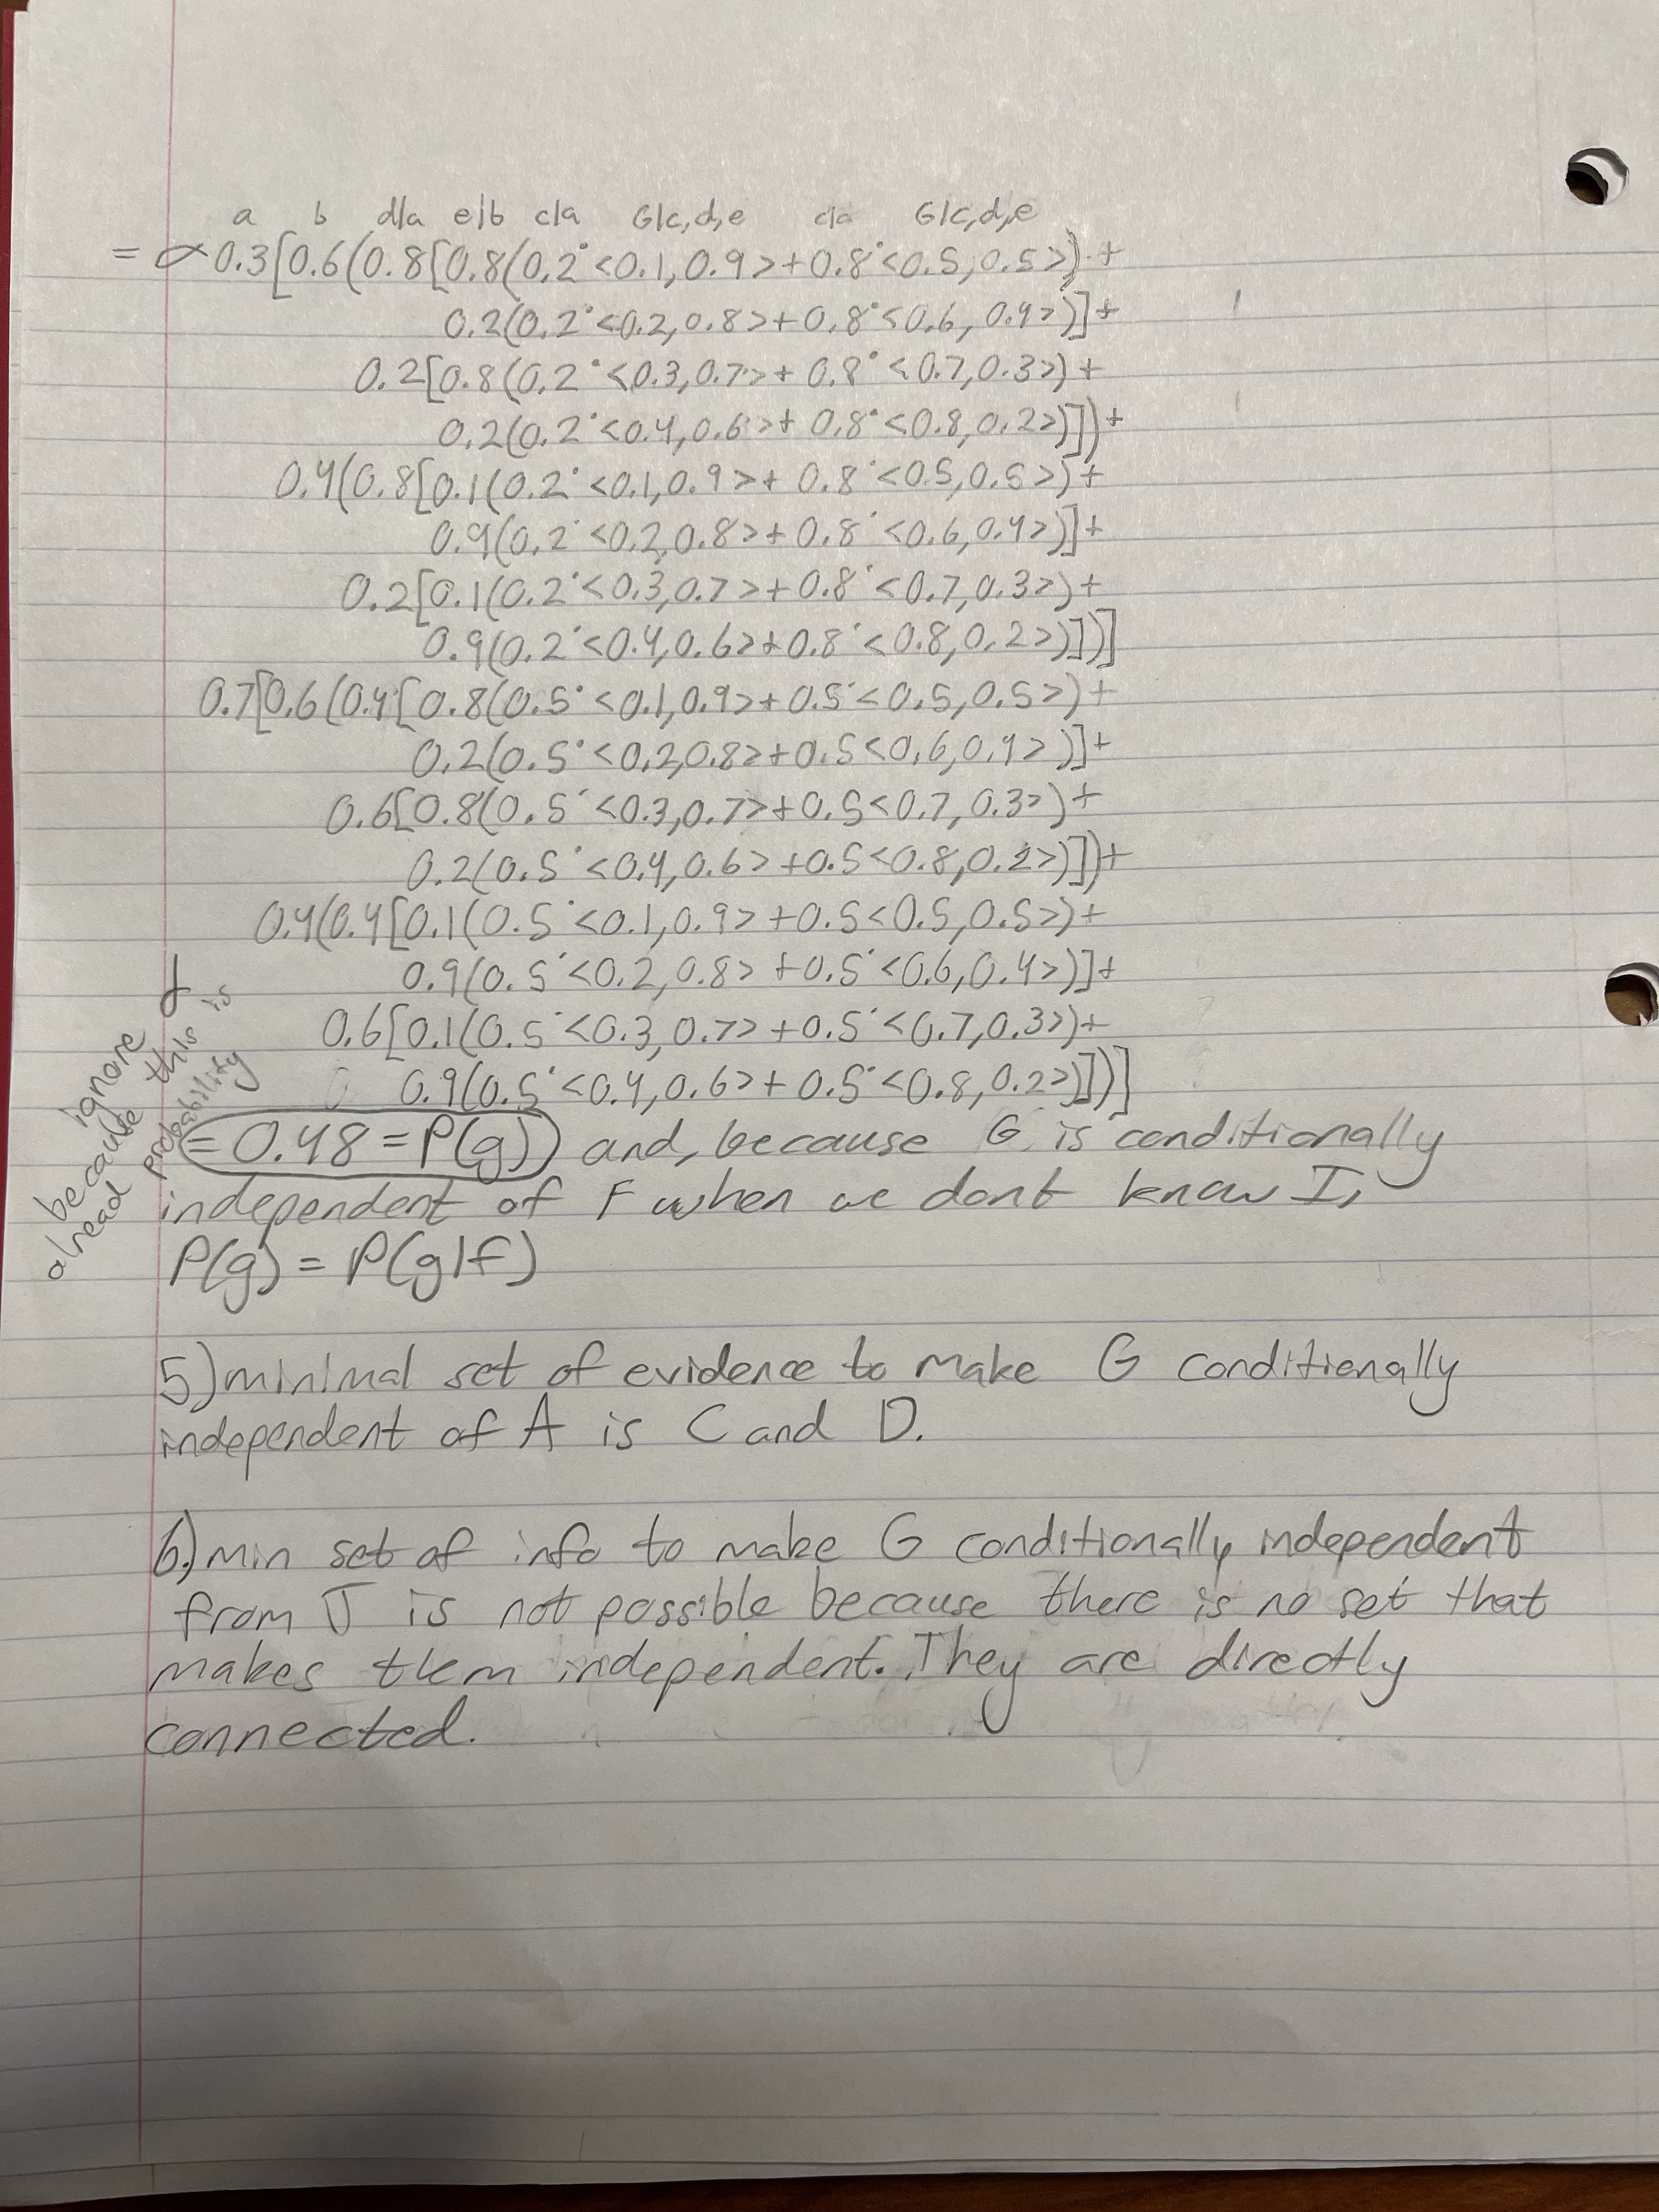 a b d|a e|b c|a G|c,d,e c|a G|c,d,e
= α 0.3[0.6(0.8[0.8(0.2·<0.1,0.9>+0.8·<0.5,0.5>)+
0.2(0.2·<0.2,0.8>+0.8·<0.6,0.4>)]+
0.2[0.8(0.2·<0.3,0.7>+0.8·<0.7,0.3>)+
0.2(0.2·<0.4,0.6>+0.8·<0.8,0.2>)])+
0.4(0.8[0.1(0.2·<0.1,0.9>+0.8·<0.5,0.5>)+
0.9(0.2·<0.2,0.8>+0.8·<0.6,0.4>)]+
0.2[0.1(0.2·<0.3,0.7>+0.8·<0.7,0.3>)+
0.9(0.2·<0.4,0.6>+0.8·<0.8,0.2>)])]
0.7[0.6(0.4[0.8(0.5·<0.1,0.9>+0.5·<0.5,0.5>)+
0.2(0.5·<0.2,0.8>+0.5<0.6,0.4>)]+
0.6[0.8(0.5·<0.3,0.7>+0.5<0.7,0.3>)+
0.2(0.5·<0.4,0.6>+0.5<0.8,0.2>)])+
0.4(0.4[0.1(0.5·<0.1,0.9>+0.5<0.5,0.5>)+
0.9(0.5·<0.2,0.8>+0.5·<0.6,0.4>)]+
0.6[0.1(0.5·<0.3,0.7>+0.5·<0.7,0.3>)+
0.9(0.5·<0.4,0.6>+0.5·<0.8,0.2>)])]
ignore α
because this is
alread probability
=0.48=P(g) and, because G is conditionally
independent of F when we dont know I,
P(g) = P(g|f)
5) minimal set of evidence to make G conditionally
independent of A is C and D.
6.) min set of info to make G conditionally independent
from J is not possible because there is no set that
makes them independent. They are directly
connected.